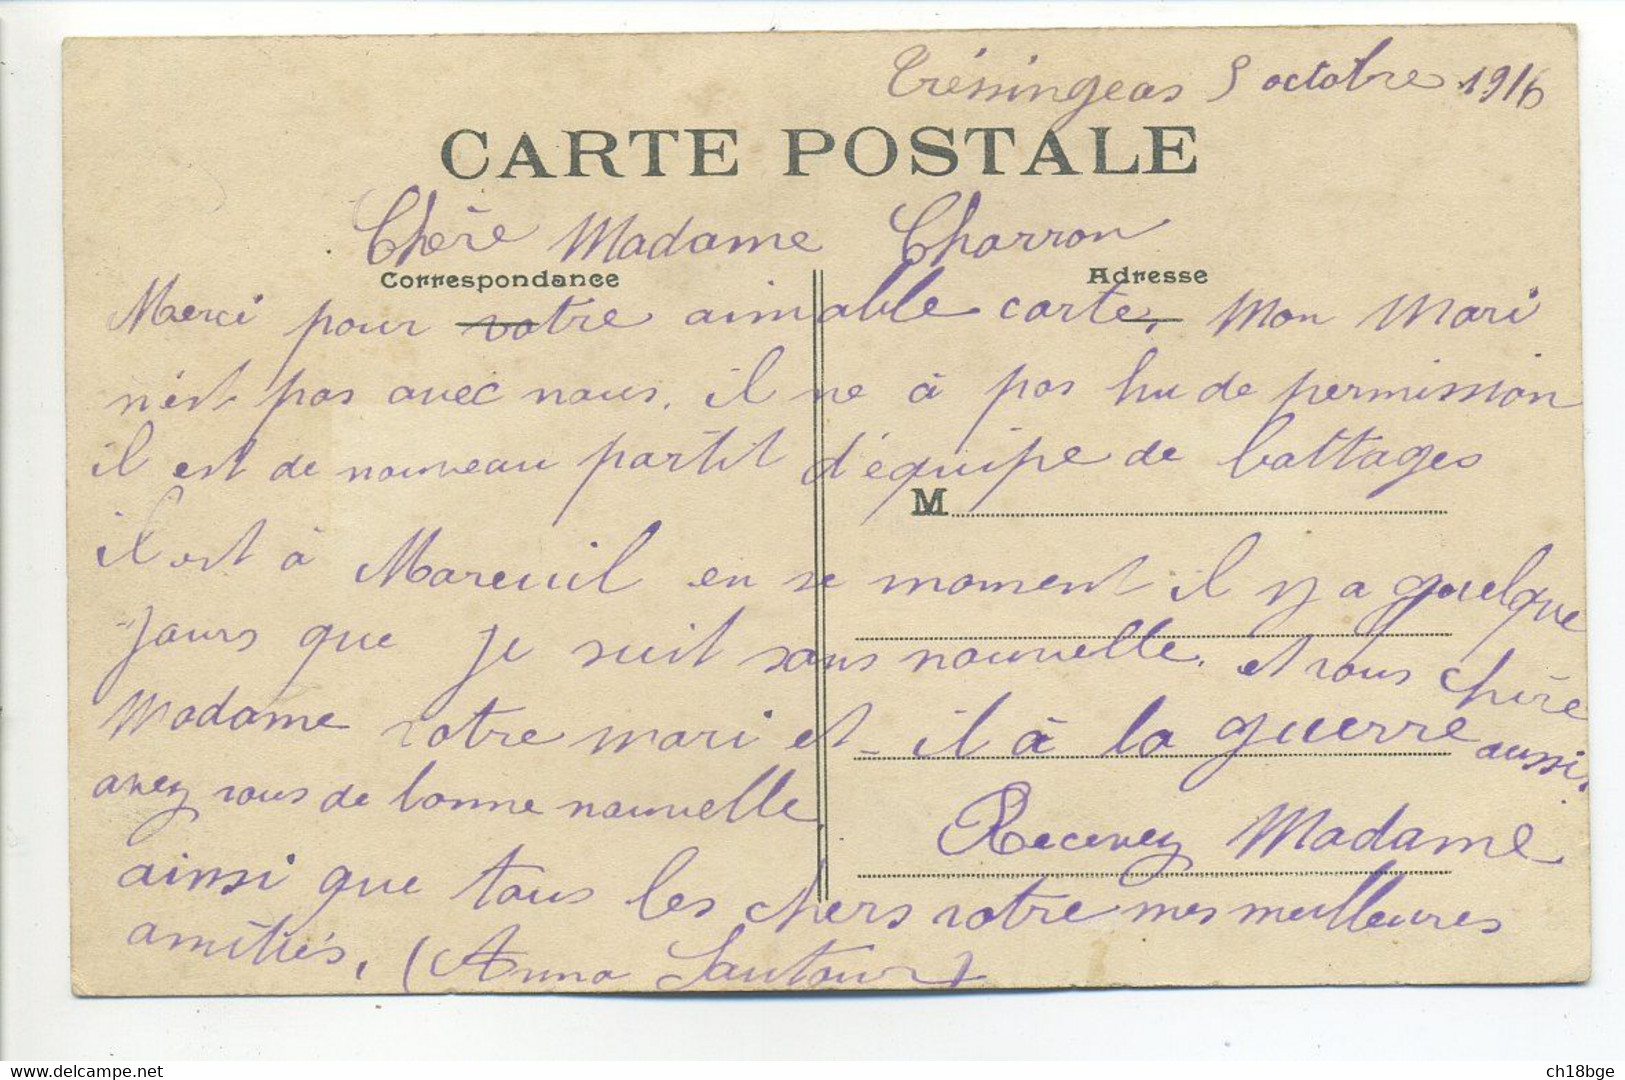 Trésingeas 5 octobre 1916
CARTE POSTALE
Chère Madame Charron
Correspondance Adresse
Merci pour votre aimable carte, Mon Mari
n'est pas avec nous. il ne à pas hu de permission
il est de nouveau partit d'équipe de battages
M
il est à Mareuil en se moment il y a quelque
jours que je suit sans nouvelle. et vous chère
Madame votre mari et-il à la guerre aussi,
avez vous de bonne nouvelle,
Recevez Madame
ainsi que tous les chers votre mes meilleures
amitiés, (Anna Sautour)
delcampe.net
ch18bge